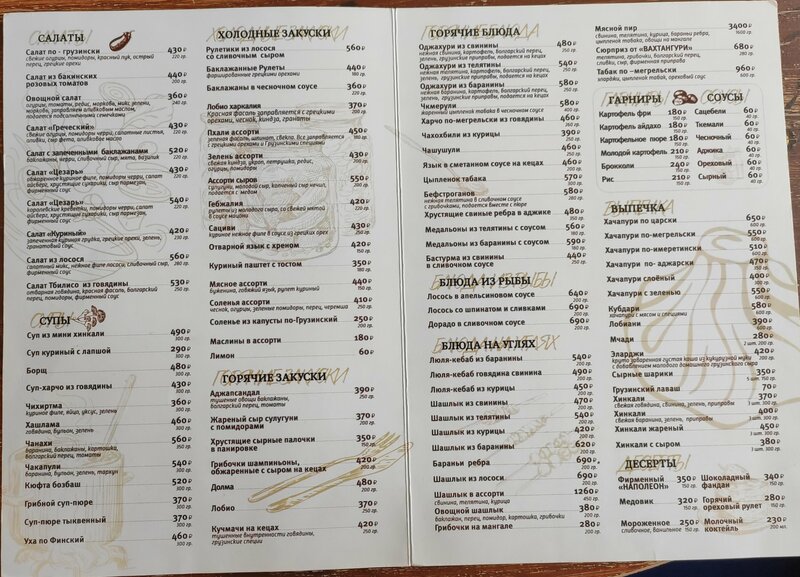 САЛАТЫ
Салат по - грузински 430₽
свежие огурцы, помидоры, красный лук, острый 220 гр.
перец, грецкие орехи
Салат из бакинских 440₽
розовых томатов 200 гр.
Овощной салат 360₽
огурцы, томаты, редис, морковь, микс зелени, 240 гр.
морковь, заправлен оливковым маслом,
подается с подсолнечными семечками
Салат «Греческий» 430₽
огурцы, помидоры черри, салатные листья,
слив., сыр фета, оливковое масло
Салат с запеченными баклажанами 520₽
баклажаны, черри, сливочный сыр, мята, базилик 220 гр.
Салат «Цезарь» 430₽
обжаренное куриное филе, помидоры черри, салат
айсберг, хрустящие сухарики, сыр пармезан,
фирменный соус
Салат «Цезарь» 540₽
королевские креветки, помидоры черри, салат
айсберг, хрустящие сухарики, сыр пармезан,
фирменный соус
Салат «Куриный» 420₽
запеченная куриная грудка, грецкие орехи, зелень, 230 гр.
гранатовый соус
Салат из лосося 560₽
салатный микс, нежное филе лосося, сливочный сыр, 280 гр.
фирменный соус
Салат Тбилисо из говядины 530₽
отварная говядина, красная фасоль, болгарский 250 гр.
перец, помидоры, фирменный соус
СУПЫ
Суп из мини хинкали 490₽
300 гр.
Суп куриный с лапшой 290₽
300 гр.
Борщ 480₽
300 гр.
Суп-харчо из говядины 430₽
300 гр.
Чихиртма 360₽
куриное филе, яйца, уксус, зелень 300 гр.
Хашлама 460₽
говядина, бульон, зелень 300 гр.
Чанахи 560₽
баранина, баклажаны, картошка, 350 гр.
болгарский перец, томаты
Чакапули 540₽
баранина, бульон, зелень, тархун 300 гр.
Кюфта бозбаш 520₽
300 гр.
Грибной суп-пюре 370₽
300 гр.
Суп-пюре тыквенный 370₽
300 гр.
Уха по Финский 460₽
300 гр.
ХОЛОДНЫЕ ЗАКУСКИ
Рулетики из лосося 560₽
со сливочным сыром
Баклажанные Рулеты 440₽
фаршированные грецкими орехами 180 гр.
Баклажаны в чесночном соусе 360₽
220 гр.
Лобио харкалия 370₽
Красная фасоль заправляется с грецкими
орехами, чеснок, киндза, гранаты
Пхали ассорти 450₽
шпинат, фасоль, свекла. Все заправляется
с грецкими орехами и Грузинскими специями
Зелень ассорти 430₽
свежая кинза, укроп, петрушка, редис,
огурцы, помидоры
Ассорти сыров 550₽
сулугуни, молодой сыр, копченый сыр чечил, 200 гр.
подается с медом
Гебжалия 420₽
рулетки из молодого сыра, со свежей мятой 220 гр.
в соусе мацони
Сациви 430₽
куриное нежное филе в соусе из грецких орех
Отварной язык с хреном 420₽
150 гр.
Куриный паштет с тостом 350₽
180 гр.
Мясное ассорти 440₽
буженина, говяжий язык, рулет куриный 150 гр.
Соленья ассорти 410₽
чеснок, огурцы, зеленые помидоры, перец, черемша 250 гр.
Соленье из капусты по-Грузинский 250₽
200 гр.
Маслины в ассорти 180₽
100 гр.
Лимон 60₽
ГОРЯЧИЕ ЗАКУСКИ
Аджапсандал 390₽
тушеные овощи баклажаны, 250 гр.
болгарский перец, томаты
Жареный сыр сулугуни 370₽
с помидорами 200 гр.
Хрустящие сырные палочки 350₽
в панировке 200 гр.
Грибочки шампиньоны, 420₽
обжаренные с сыром на кецах 200 гр.
Долма 480₽
200 гр.
Лобио 370₽
250 гр.
Кучмачи на кецах 420₽
тушенные внутренности говядины, 200 гр.
грузинские специи
ГОРЯЧИЕ БЛЮДА
Оджахури из свинины 480₽
нежная свинина, картофель, болгарский перец, 250 гр.
зелень, грузинские приправы, подается на кецах
Оджахури из телятины 540₽
нежная телятина, картофель, болгарский перец, 250 гр.
зелень, грузинские приправы, подается на кецах
Оджахури из баранины 580₽
нежная баранина, картофель, болгарский перец,
зелень, грузинские приправы, подается на кецах
Чкмерули 480₽
жареный цыпленок табака в чесночном соусе
Харчо по-мегрельски из говядины 460₽
Чахохбили из курицы 390₽
Чашушули 460₽
Язык в сметанном соусе на кецах 460₽
Цыпленок табака 570₽
Бефстроганов 580₽
нежная телятина в сливочном соусе
с грибочками, подается вместе с пюре
Хрустящие свиные ребра в аджике 480₽
350 гр.
Медальоны из телятины с соусом 560₽
180 гр.
Медальоны из баранины с соусом 590₽
180 гр.
Бастурма из свинины 440₽
в сливочном соусе 200 гр.
БЛЮДА ИЗ РЫБЫ
Лосось в апельсиновом соусе 640₽
200 гр.
Лосось со шпинатом и сливками 690₽
200 гр.
Дорадо в сливочном соусе 690₽
БЛЮДА НА УГЛЯХ
Люля-кебаб из баранины 540₽
200 гр.
Люля-кебаб говядина свинина 490₽
200 гр.
Люля-кебаб из курицы 450₽
200 гр.
Шашлык из свинины 470₽
200 гр.
Шашлык из телятины 540₽
200 гр.
Шашлык из курицы 420₽
200 гр.
Шашлык из баранины 620₽
200 гр.
Бараньи ребра 690₽
Шашлык из лососи 690₽
200 гр.
Шашлык в ассорти 1260₽
свинина, телятина, курица 450 гр.
Овощной шашлык 380₽
баклажан, перец, помидор, картофель, грибочки 200 гр.
Грибочки на мангале 280₽
200 гр.
Мясной пир 3400₽
свинина, телятина, курица, бараньи ребра, 1600 гр.
цыпленок табака, овощи на мангале
Сюрприз от «ВАХТАНГУРИ» 680₽
свинина, грибочки, болгарский перец, зелень, 280 гр.
сливки, сыр, фирменная приправа
Табак по -мегрельски 960₽
шпараги, цыпленок табака, ореховый соус
ГАРНИРЫ
Картофель фри 180₽
150 гр.
Картофель айдахо 180₽
150 гр.
Картофельное пюре 180₽
150 гр.
Молодой картофель 210₽
150 гр.
Брокколи 240₽
150 гр.
Рис 210₽
150 гр.
СОУСЫ
Сацебели 60₽
40 гр.
Ткемали 60₽
40 гр.
Чесночный 60₽
40 гр.
Аджика 60₽
40 гр.
Ореховый 60₽
40 гр.
Сырный 60₽
40 гр.
ВЫПЕЧКА
Хачапури по царски 650₽
600 гр.
Хачапури по-мегрельски 550₽
600 гр.
Хачапури по-имеретински 510₽
600 гр.
Хачапури по- аджарски 470₽
Хачапури слоёный 400₽
Хачапури с зеленью 550₽
600 гр.
Кубдари 580₽
хачапури с мясом и специями 600 гр.
Лобиани 390₽
600 гр.
Мчади 280₽
2 шт. 200 гр.
Эларджи 420₽
круто заваренная густая каша из кукурузной муки
с добавлением молодого домашнего грузинского сыра
Сырные шарики 350₽
5 шт. 150 гр.
Грузинский лаваш 70₽
Хинкали 370₽
свежая говядина, свинина, зелень, приправы 3 шт. 300 гр.
Хинкали 400₽
свежая баранина, зелень, приправы 3 шт. 300 гр.
Хинкали жареный 450₽
3 шт. 300 гр.
Хинкали с сыром 380₽
3 шт. 300 гр.
ДЕСЕРТЫ
Фирменный 350₽
«НАПОЛЕОН» 150 гр.
Медовик 320₽
150 гр.
Мороженое 250₽
сливочное, ванильное 150 гр.
Шоколадный 340₽
фандан 150 гр.
Горячий 280₽
ореховый рулет 150 гр.
Молочный 230₽
коктейль 200 мл.